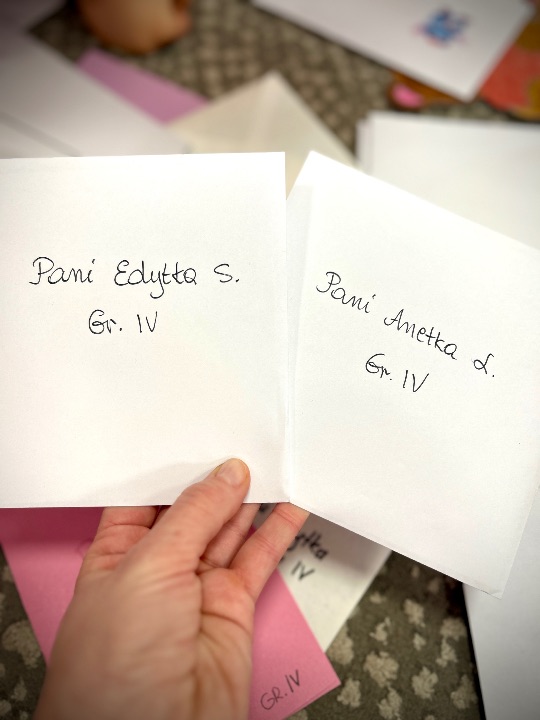 Pani Edytka S.
Gr. IV
Pani Anetka L.
Gr. IV
IV
GR. IV